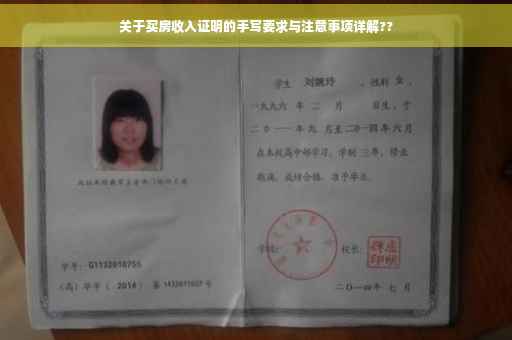 关于买房收入证明的手写要求与注意事项详解??
学生 刘婉玲 ，性别 女 ，
一九九六 年 二 月 日生，于
二〇一一年九 月至二〇一四年六月
在本校高中部学习，学制 三年，修业
期满，成绩合格，准予毕业。
学校： 校长：
学号： G1132010755
（高）毕字（ 2014 ）第 1432011027 号
二〇一四年 七 月